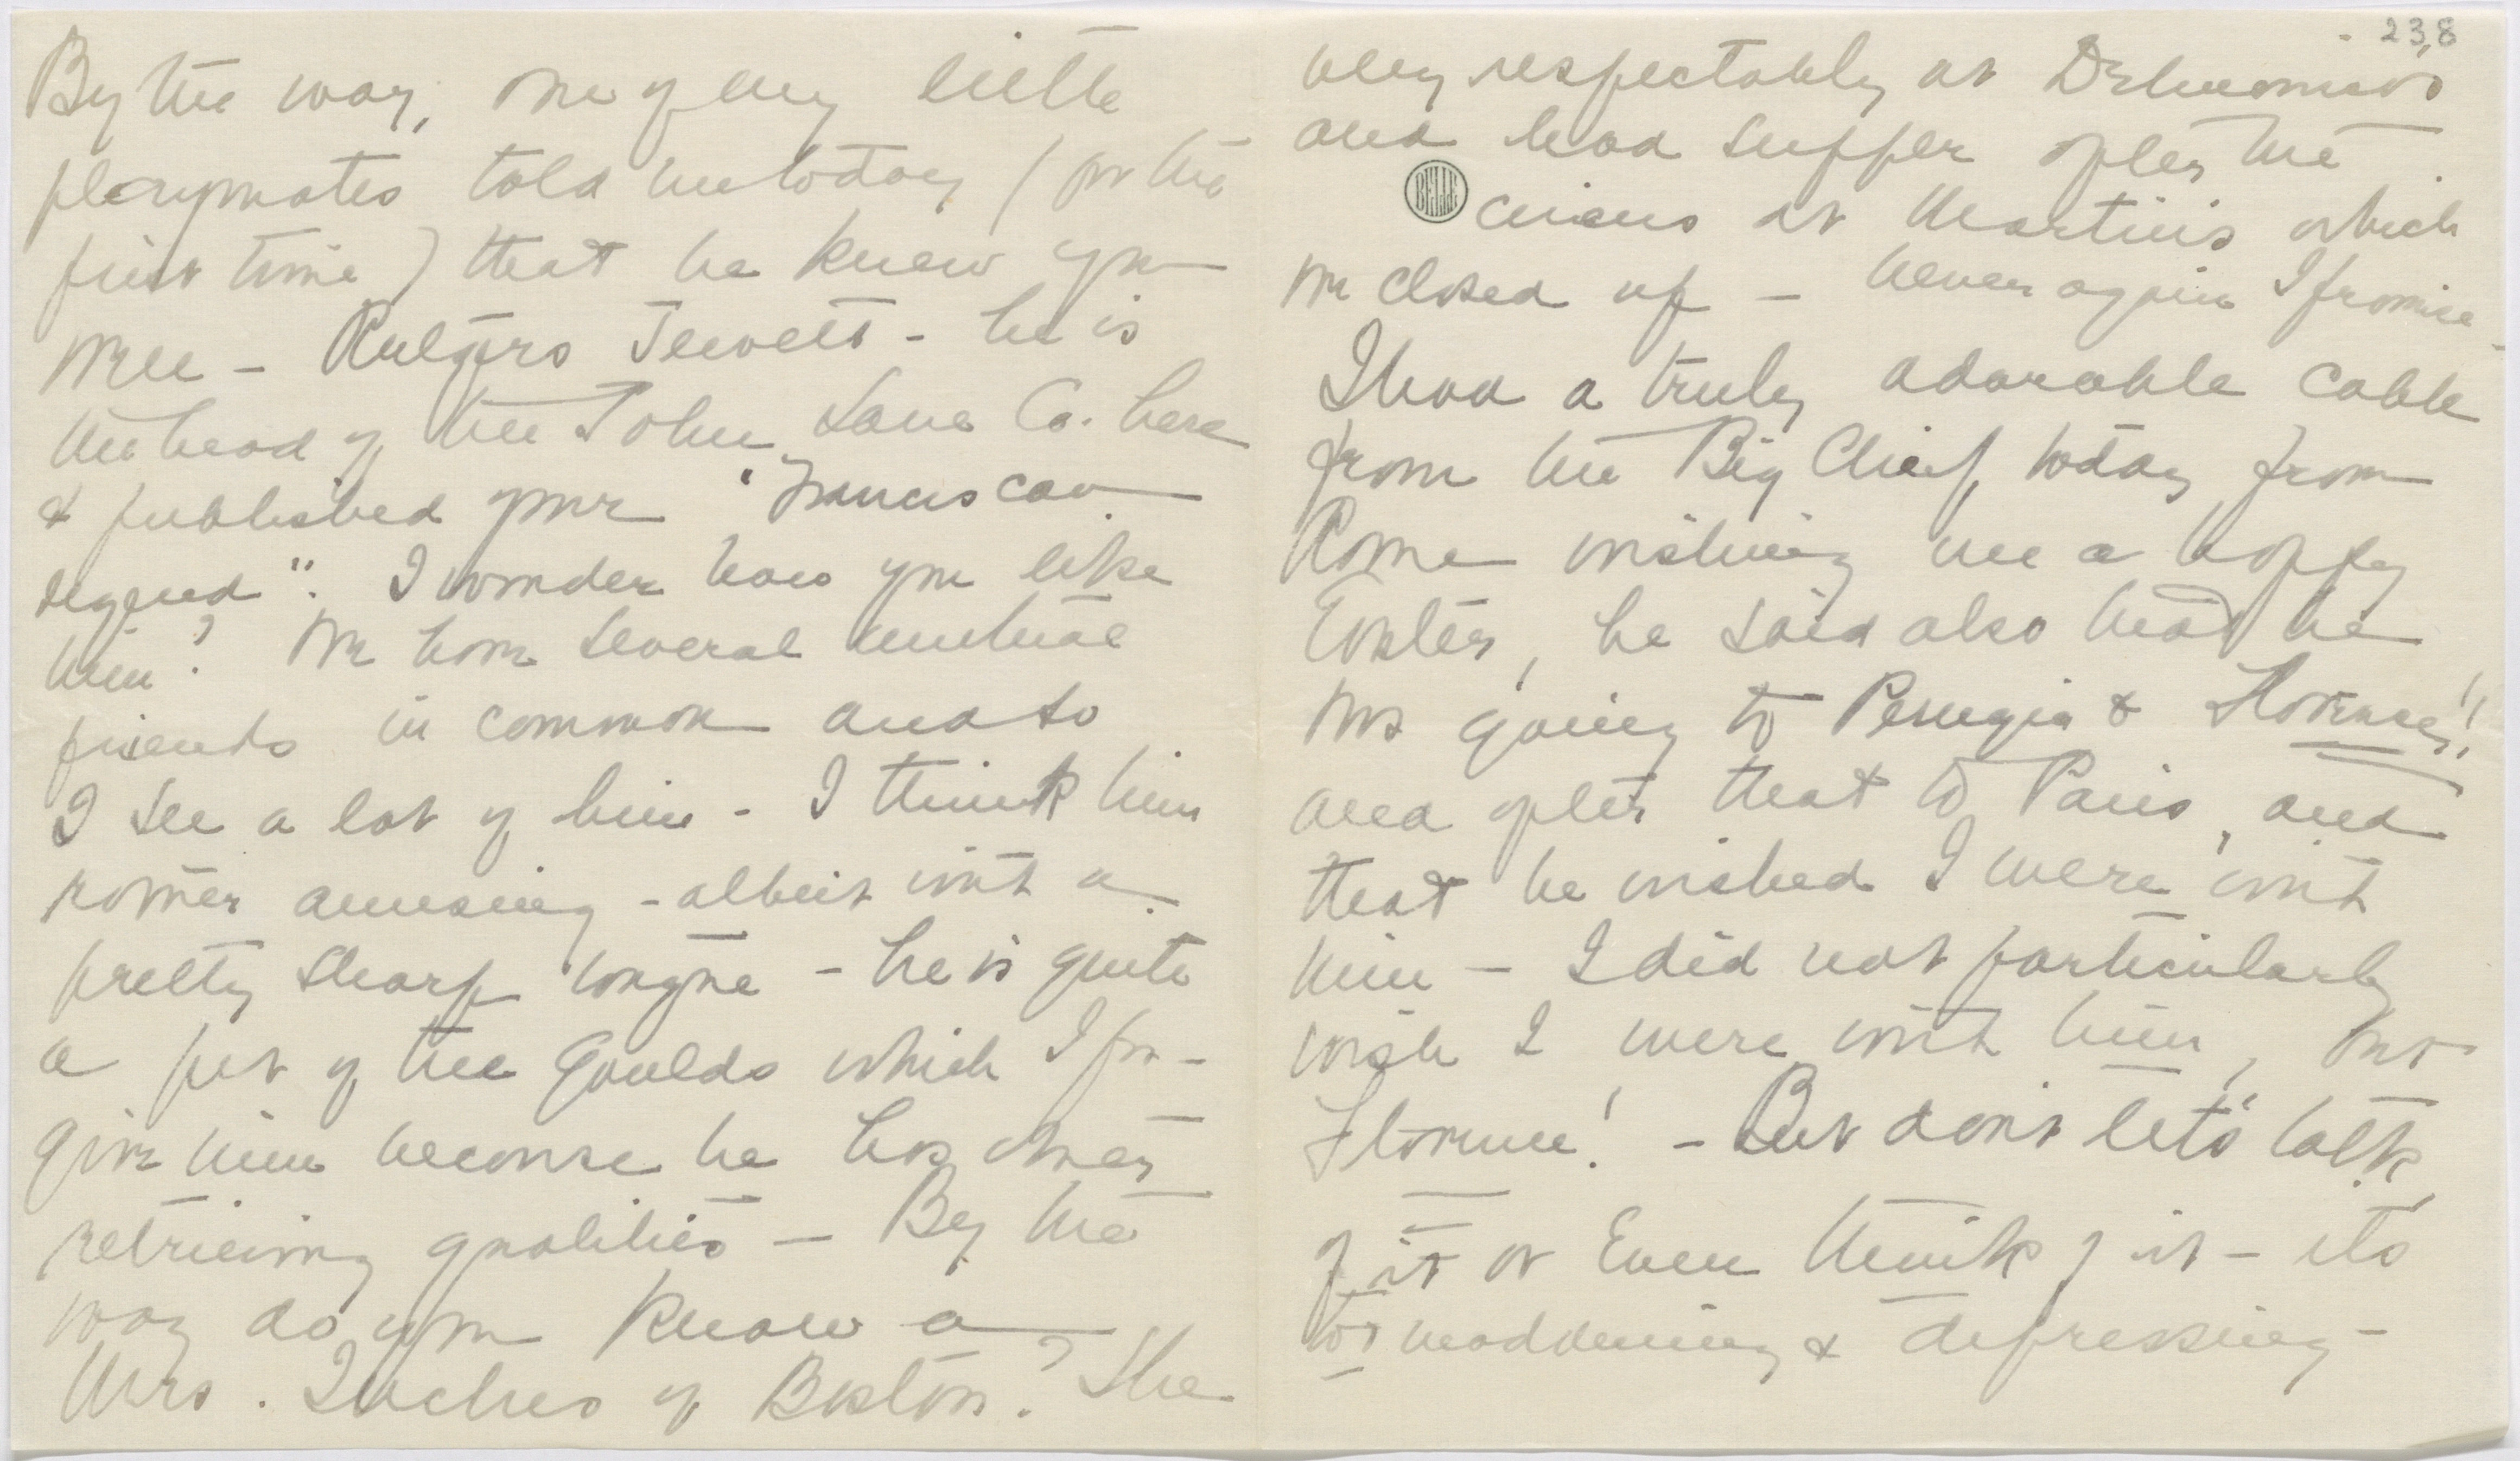 By the way, one of my little
playmates told me today (for the
first time) that he knew you
well – Rutgers Jewett – he is
the head of the John Lane Co. here
& published your "Franciscan
legend". I wonder how you like
him? We have several mutual
friends in common and so
I see a lot of him – I think him
rather amusing – albeit with a
pretty sharp tongue – he is quite
a pet of the Goulds which I for-
give him because he has other
retrieving qualities – By the
way do you know a
Mrs. Inches of Boston? She
238
very respectably at Delmonico's
and had supper after the
BELLE
circus at Martin's which
we closed up – Never again I promise –
I had a truly adorable cable
from the Big Chief today from
Rome wishing me a happy
Easter, he said also that he
was going to Perugia & Florence!!
and after that to Paris, and
that he wished I were with
him – I did not particularly
wish I were with him, but
Florence! – But don't let's talk
of it or even think of it – its
too maddening & depressing –